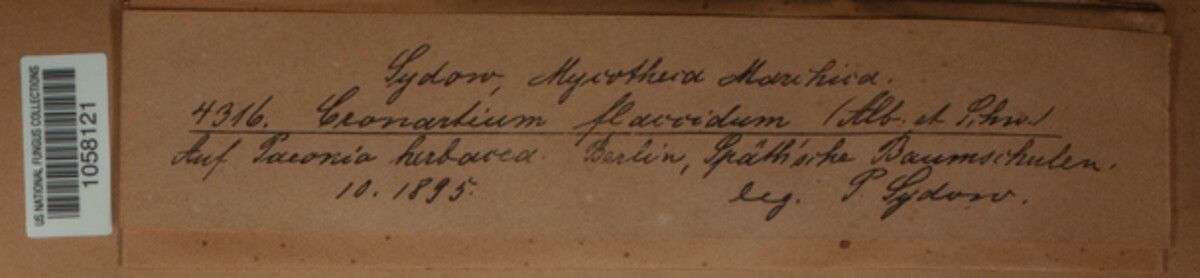 US NATIONAL FUNGUS COLLECTIONS
1058121
Sydow, Mycotheca Marchica.
4316. Cronartium flaccidum (Alb. et Schw.)
Auf Paeonia herbacea. Berlin, Späth'sche Baumschulen.
10. 1895. leg. P. Sydow.